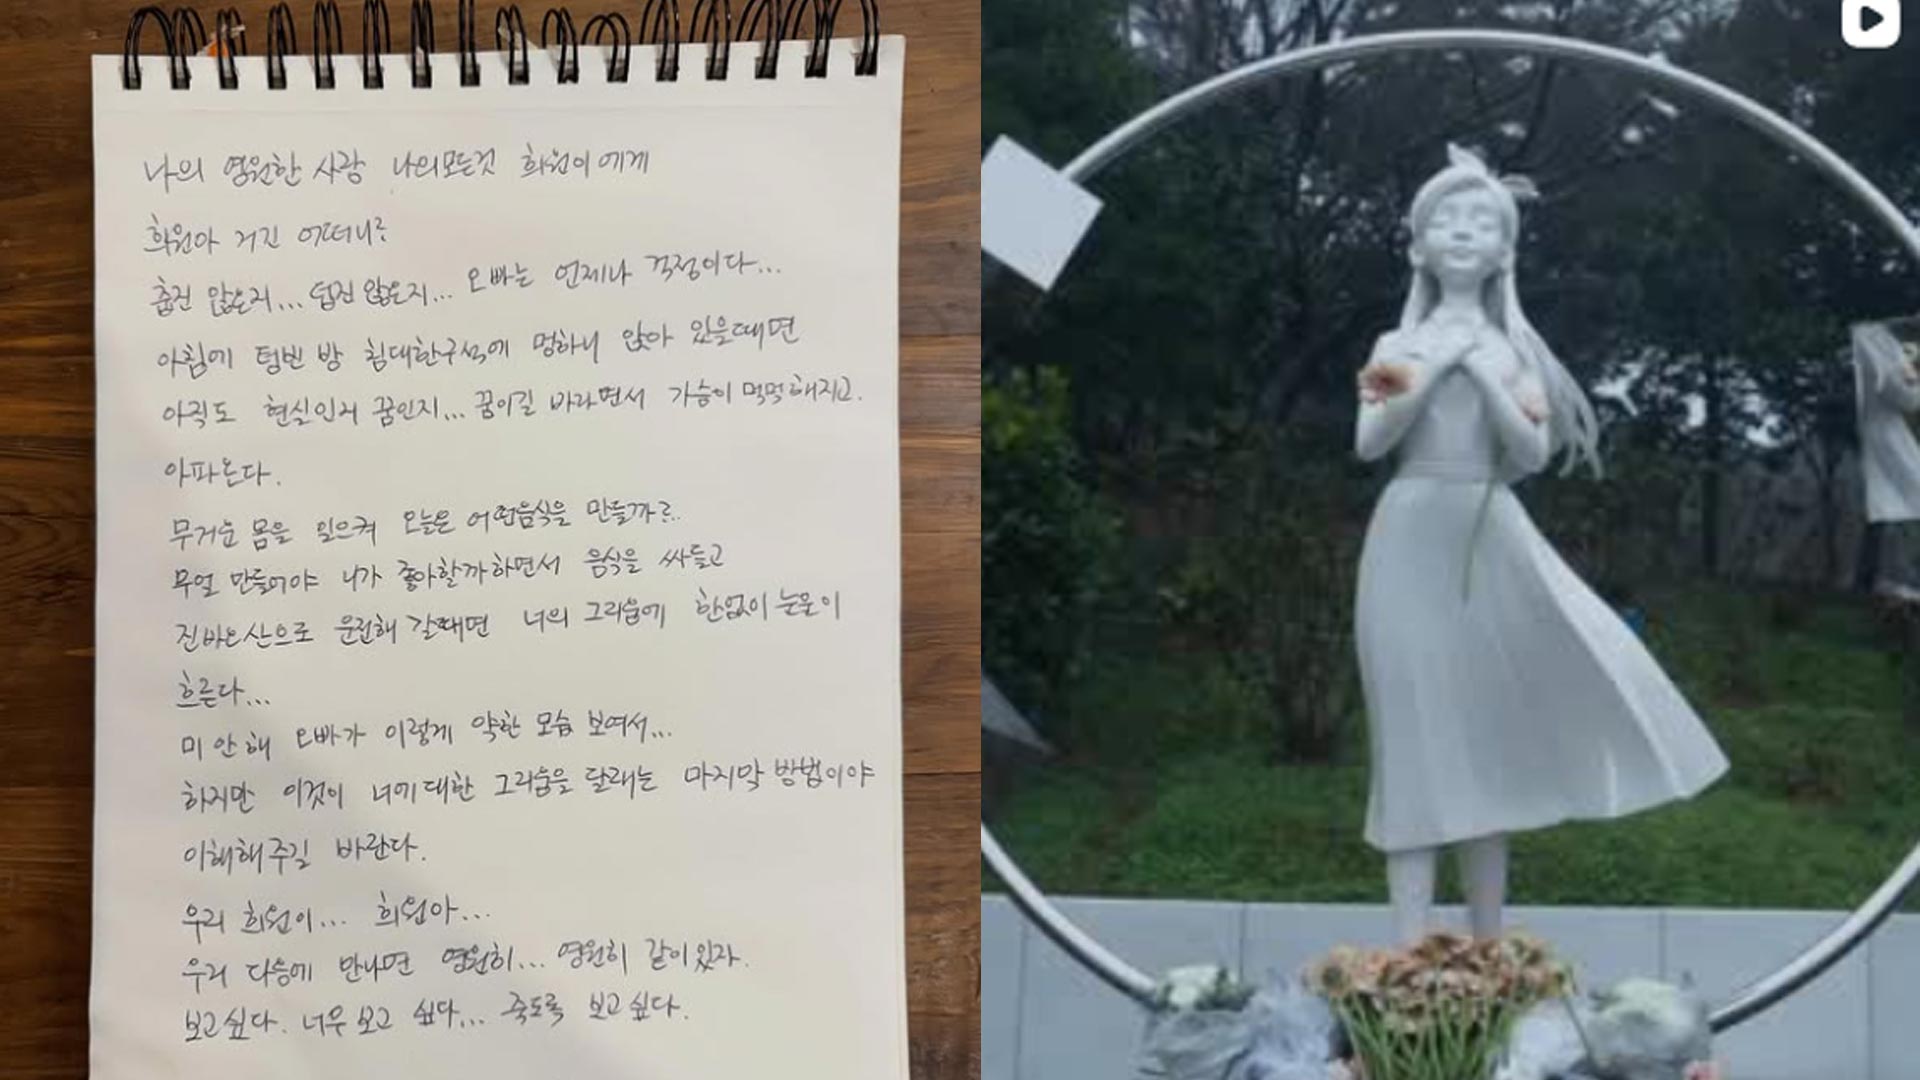 나의 영원한 사랑 나의모든것 희원이에게
희원아 거긴 어떠니?
춥진 않은지... 덥진 않은지... 오빠는 언제나 걱정이다...
아침에 텅빈 방 침대한구석에 멍하니 앉아 있을때면
아직도 현실인지 꿈인지... 꿈이길 바라면서 가슴이 먹먹해지고.
아파온다.
무거운 몸을 일으켜 오늘은 어떤음식을 만들까?..
무얼 만들어야 니가 좋아할까하면서 음식을 싸들고
진바온산으로 운전해 갈때면 너의 그리움에 한없이 눈물이
흐른다...
미안해 오빠가 이렇게 약한 모습 보여서...
하지만 이것이 너에대한 그리움을 달래는 마지막 방법이야
이해해주길 바란다.
우리 희원이... 희원아...
우리 다음에 만나면 영원히... 영원히 같이있자.
보고싶다. 너무 보고 싶다... 죽도록 보고싶다.